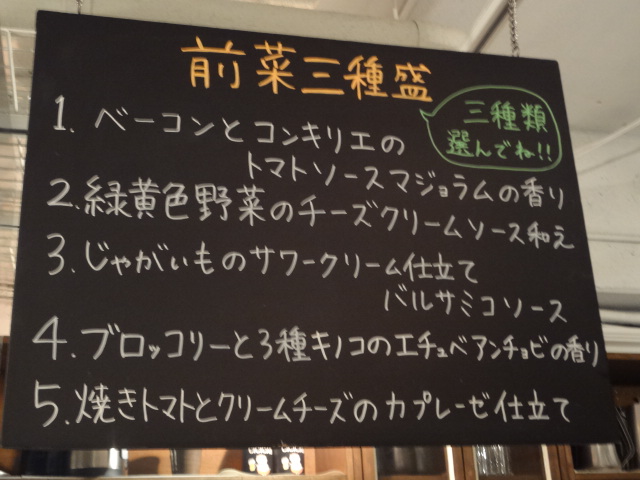 前菜三種盛
三種類
選んでね!!
1. ベーコンとコンキリエの
トマトソースマジョラムの香り
2.緑黄色野菜のチーズクリームソース和え
3.じゃがいものサワークリーム仕立て
バルサミコソース
4.ブロッコリーと3種キノコのエチュベアンチョビの香り
5.焼きトマトとクリームチーズのカプレーゼ仕立て